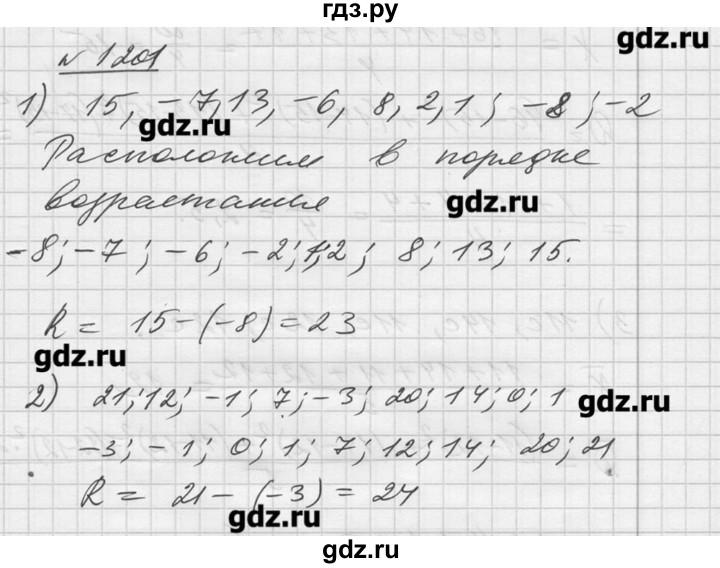 гдз.ру
gdz.ru
№ 1201
1) 15, -7, 13, -6, 8, 2, 1; -8; -2
gdz.ru
Расположим в порядке
возрастания
gdz.ru
-8; -7; -6; -2; 1; 2; 8; 13; 15.
R = 15-(-8) = 23
gdz.ru
2) 21; 12; -1; 7; -3; 20; 14; 0; 1
gdz.ru
-3; -1; 0; 1; 7; 12; 14; 20; 21
R = 21-(-3) = 24
gdz.ru
gdz.ru